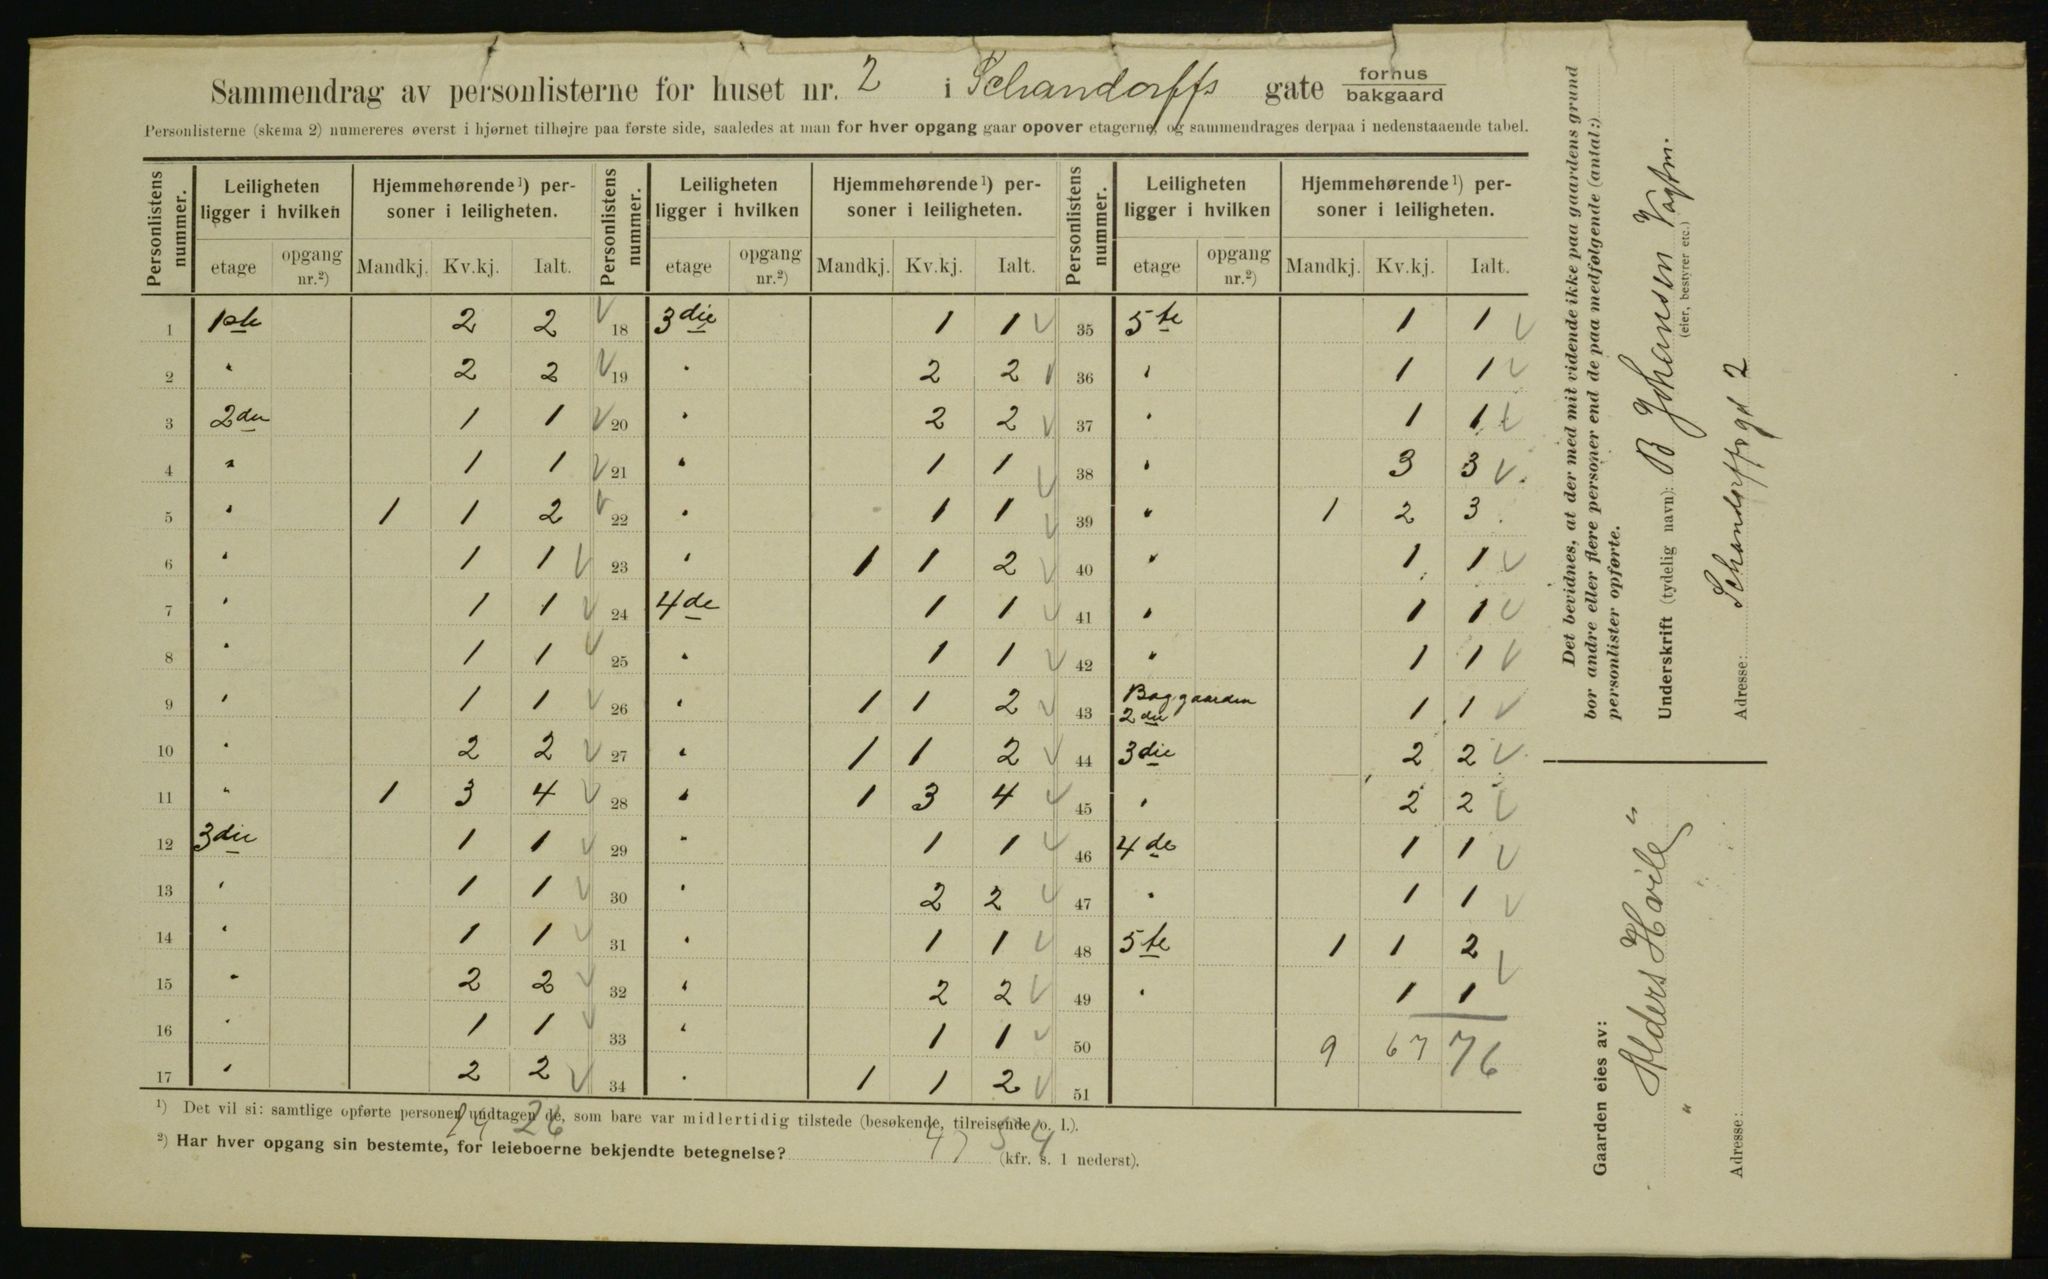 Sammendrag av personlisterne for huset nr. 2 i Schandorffs gate forhus bakgaard
Personlisterne (skema 2) numereres øverst i hjørnet tilhøjre paa første side, saaledes at man for hver opgang gaar opover etagerne, og sammendrages derpaa i nedenstaaende tabel.
Personlistens nummer. Leiligheten ligger i hvilken Hjemmehørende¹) personer i leiligheten. Personlistens nummer. Leiligheten ligger i hvilken Hjemmehørende¹) personer i leiligheten. Personlistens nummer. Leiligheten ligger i hvilken Hjemmehørende¹) personer i leiligheten.
etage opgang nr.²) Mandkj. Kv.kj. Ialt. etage opgang nr.²) Mandkj. Kv.kj. Ialt. etage opgang nr.²) Mandkj. Kv.kj. Ialt.
1 1ste 2 2 18 3die 1 1 35 5te 1 1
2 " 2 2 19 " 2 2 36 " 1 1
3 2den 1 1 20 " 2 2 37 " 1 1
4 " 1 1 21 " 1 1 38 " 3 3
5 " 1 1 2 22 " 1 1 39 " 1 2 3
6 " 1 1 23 " 1 1 2 40 " 1 1
7 " 1 1 24 4de 1 1 41 " 1 1
8 " 1 1 25 " 1 1 42 " 1 1
9 " 1 1 26 " 1 1 2 43 Baggaarden 2den 1 1
10 " 2 2 27 " 1 1 2 44 3die 2 2
11 " 1 3 4 28 " 1 3 4 45 " 2 2
12 3die 1 1 29 " 1 1 46 4de 1 1
13 " 1 1 30 " 2 2 47 " 1 1
14 " 1 1 31 " 1 1 48 5te 1 1 2
15 " 2 2 32 " 2 2 49 " 1 1
16 " 1 1 33 " 1 1 50 9 67 76
17 " 2 2 34 " 1 1 2 51
¹) Det vil si: samtlige opførte personer undtagen de, som bare var midlertidig tilstede (besøkende, tilreisende o. l.).
26
²) Har hver opgang sin bestemte, for leieboerne bekjendte betegnelse? (kfr. s. 1 nederst).
47 54
Det bevidnes, at der med mit vidende ikke paa gaardens grund
bor andre eller flere personer end de paa medfølgende (antal:)
personlister opførte.
Underskrift (tydelig navn): B Johansen Vagtm.
(eier, bestyrer etc.)
Adresse: Schandorffsgd 2
Gaarden eies av:
"Alders Hvile"
Adresse: